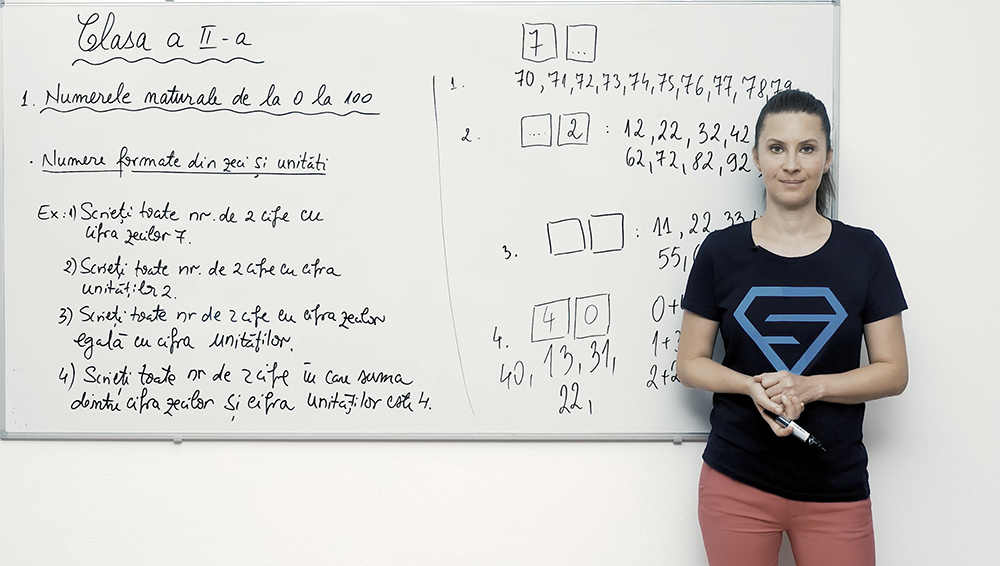 Clasa a II-a
1. Numerele naturale de la 0 la 100
· Numere formate din zeci și unități
Ex: 1) Scrieți toate nr. de 2 cifre cu
cifra zecilor 7.
2) Scrieți toate nr. de 2 cifre cu cifra
unităților 2.
3) Scrieți toate nr de 2 cifre cu cifra zecilor
egală cu cifra unităților.
4) Scrieți toate nr de 2 cifre în care suma
dintre cifra zecilor și cifra unităților este 4.
7 ...
1. 70, 71, 72, 73, 74, 75, 76, 77, 78, 79
2. .... 2 : 12, 22, 32, 42
62, 72, 82, 92
3. : 11, 22, 33
55,
4. 4 0
40, 13, 31,
22,
0+
1+3
2+2